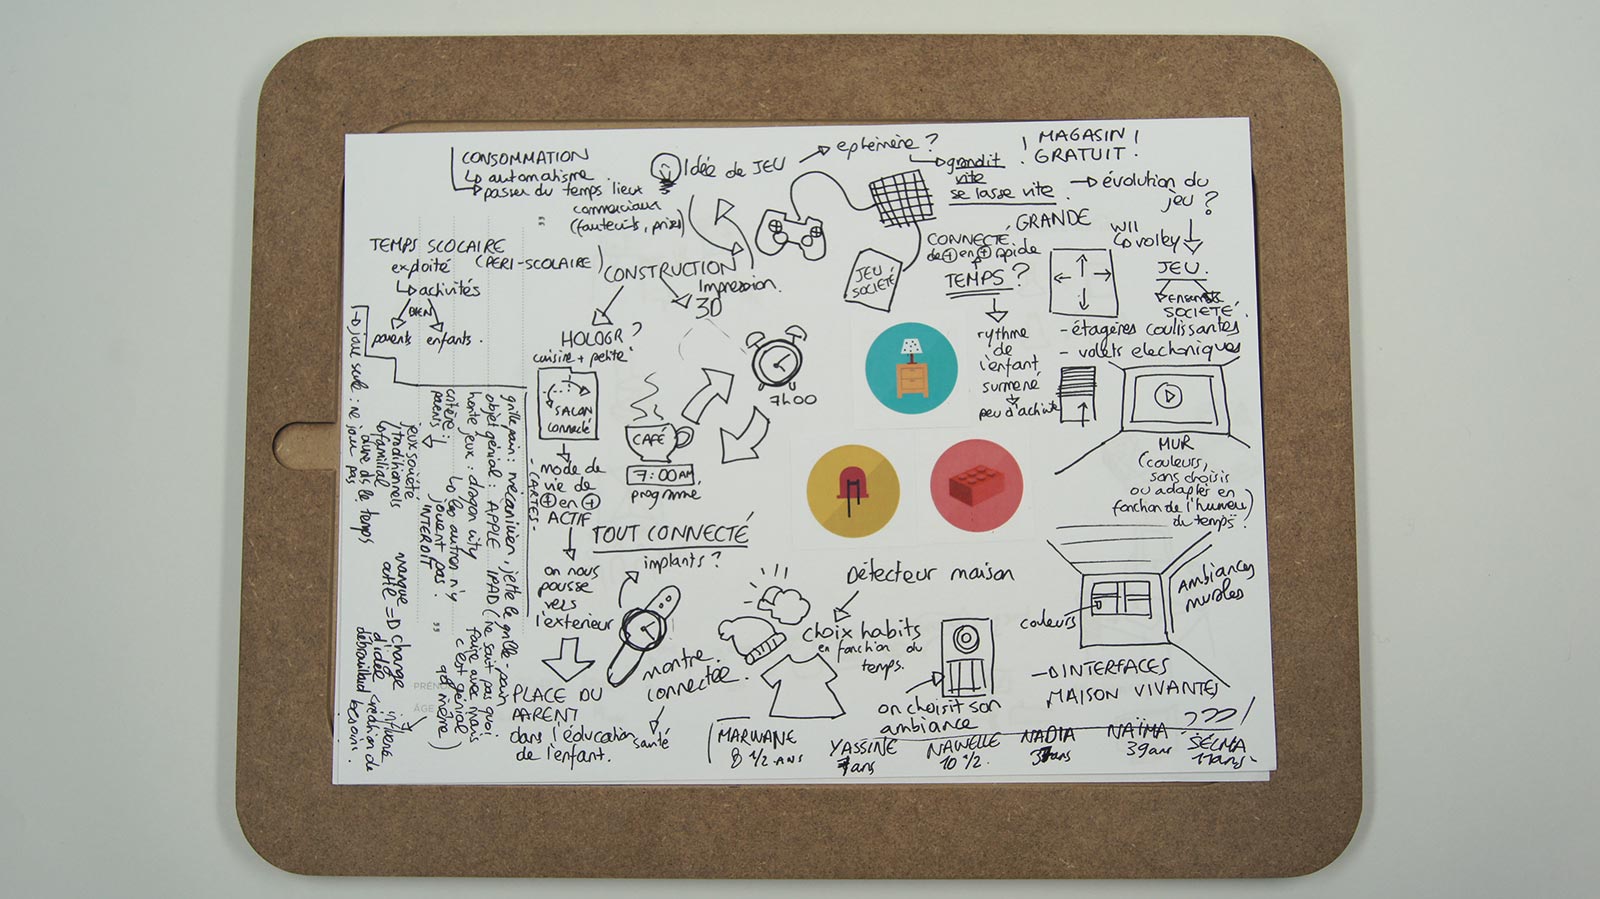 CONSOMMATION
↳ automatisme.
↳ passer du temps lieux
commerciaux
(fauteuils, prises)
Idée de JEU → ephémère ?
↳ grandit
vite
se lasse vite
→ évolution du
jeu ?
! MAGASIN !
! GRATUIT !
TEMPS SCOLAIRE
(PÉRI-SCOLAIRE)
exploité
↳ activités
BIEN
parents
enfants.
CONSTRUCTION
Impression
3D
HOLOGR ?
cuisine + petite
SALON
connecté
mode de
vie de
⊕ en ⊕
ACTIF
- CARTES -
on nous
pousse
vers
l'extérieur
PLACE DU
PARENT
dans l'éducation
de l'enfant.
JEU
SOCIÉTÉ
CONNECTÉ
de ⊕ en ⊕ rapide
TEMPS ?
rythme
de
l'enfant
surmené
peu d'activité
GRANDE
WII
↳ volley
JEU.
SOCIÉTÉ.
- étagères coulissantes
- volets electroniques
MUR
(couleurs,
sans choisis
ou adapter en
fonction de l'humeur)
du temps ?
7h00
CAFÉ
7:00AM
programme
TOUT CONNECTÉ
implants ?
montre
connectée.
santé
Détecteur maison
choix habits
en fonction du
temps.
on choisit son
ambiance
couleurs
AMBIANCES
MURALES
→ INTERFACES
MAISON VIVANTES
grille pain : mécanicien, jette le grille-pain
objet génial : APPLE IPAD (ne sait pas quoi
faire avec mais
c'est génial
qd même)
honte jeux : dragon city
↳ les autres n'y
jouent pas.
critère :
parents → INTERDIT
jeux société
traditionnels
familial
↳ joue seule : ne joue pas
manque
d'idée
création de
besoin.
PRÉNO
ÂGE
MARWANE
8 1/2 ANS
YASSINE
7 ans
NAWELLE
10 1/2.
NADIA
NAÏMA
39 ans
SELMA
11 ans